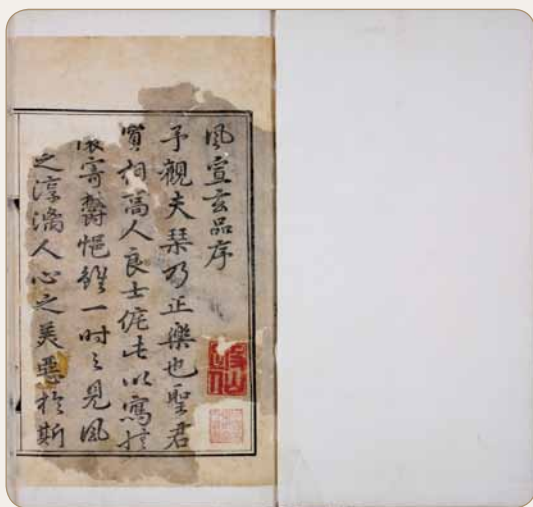 風宣玄品序
予觀夫琴乃正樂也聖君
賢相高人良士侂此以寫
寄鬱悒雖一時之見風
之淳漓人心之美惡扵斯